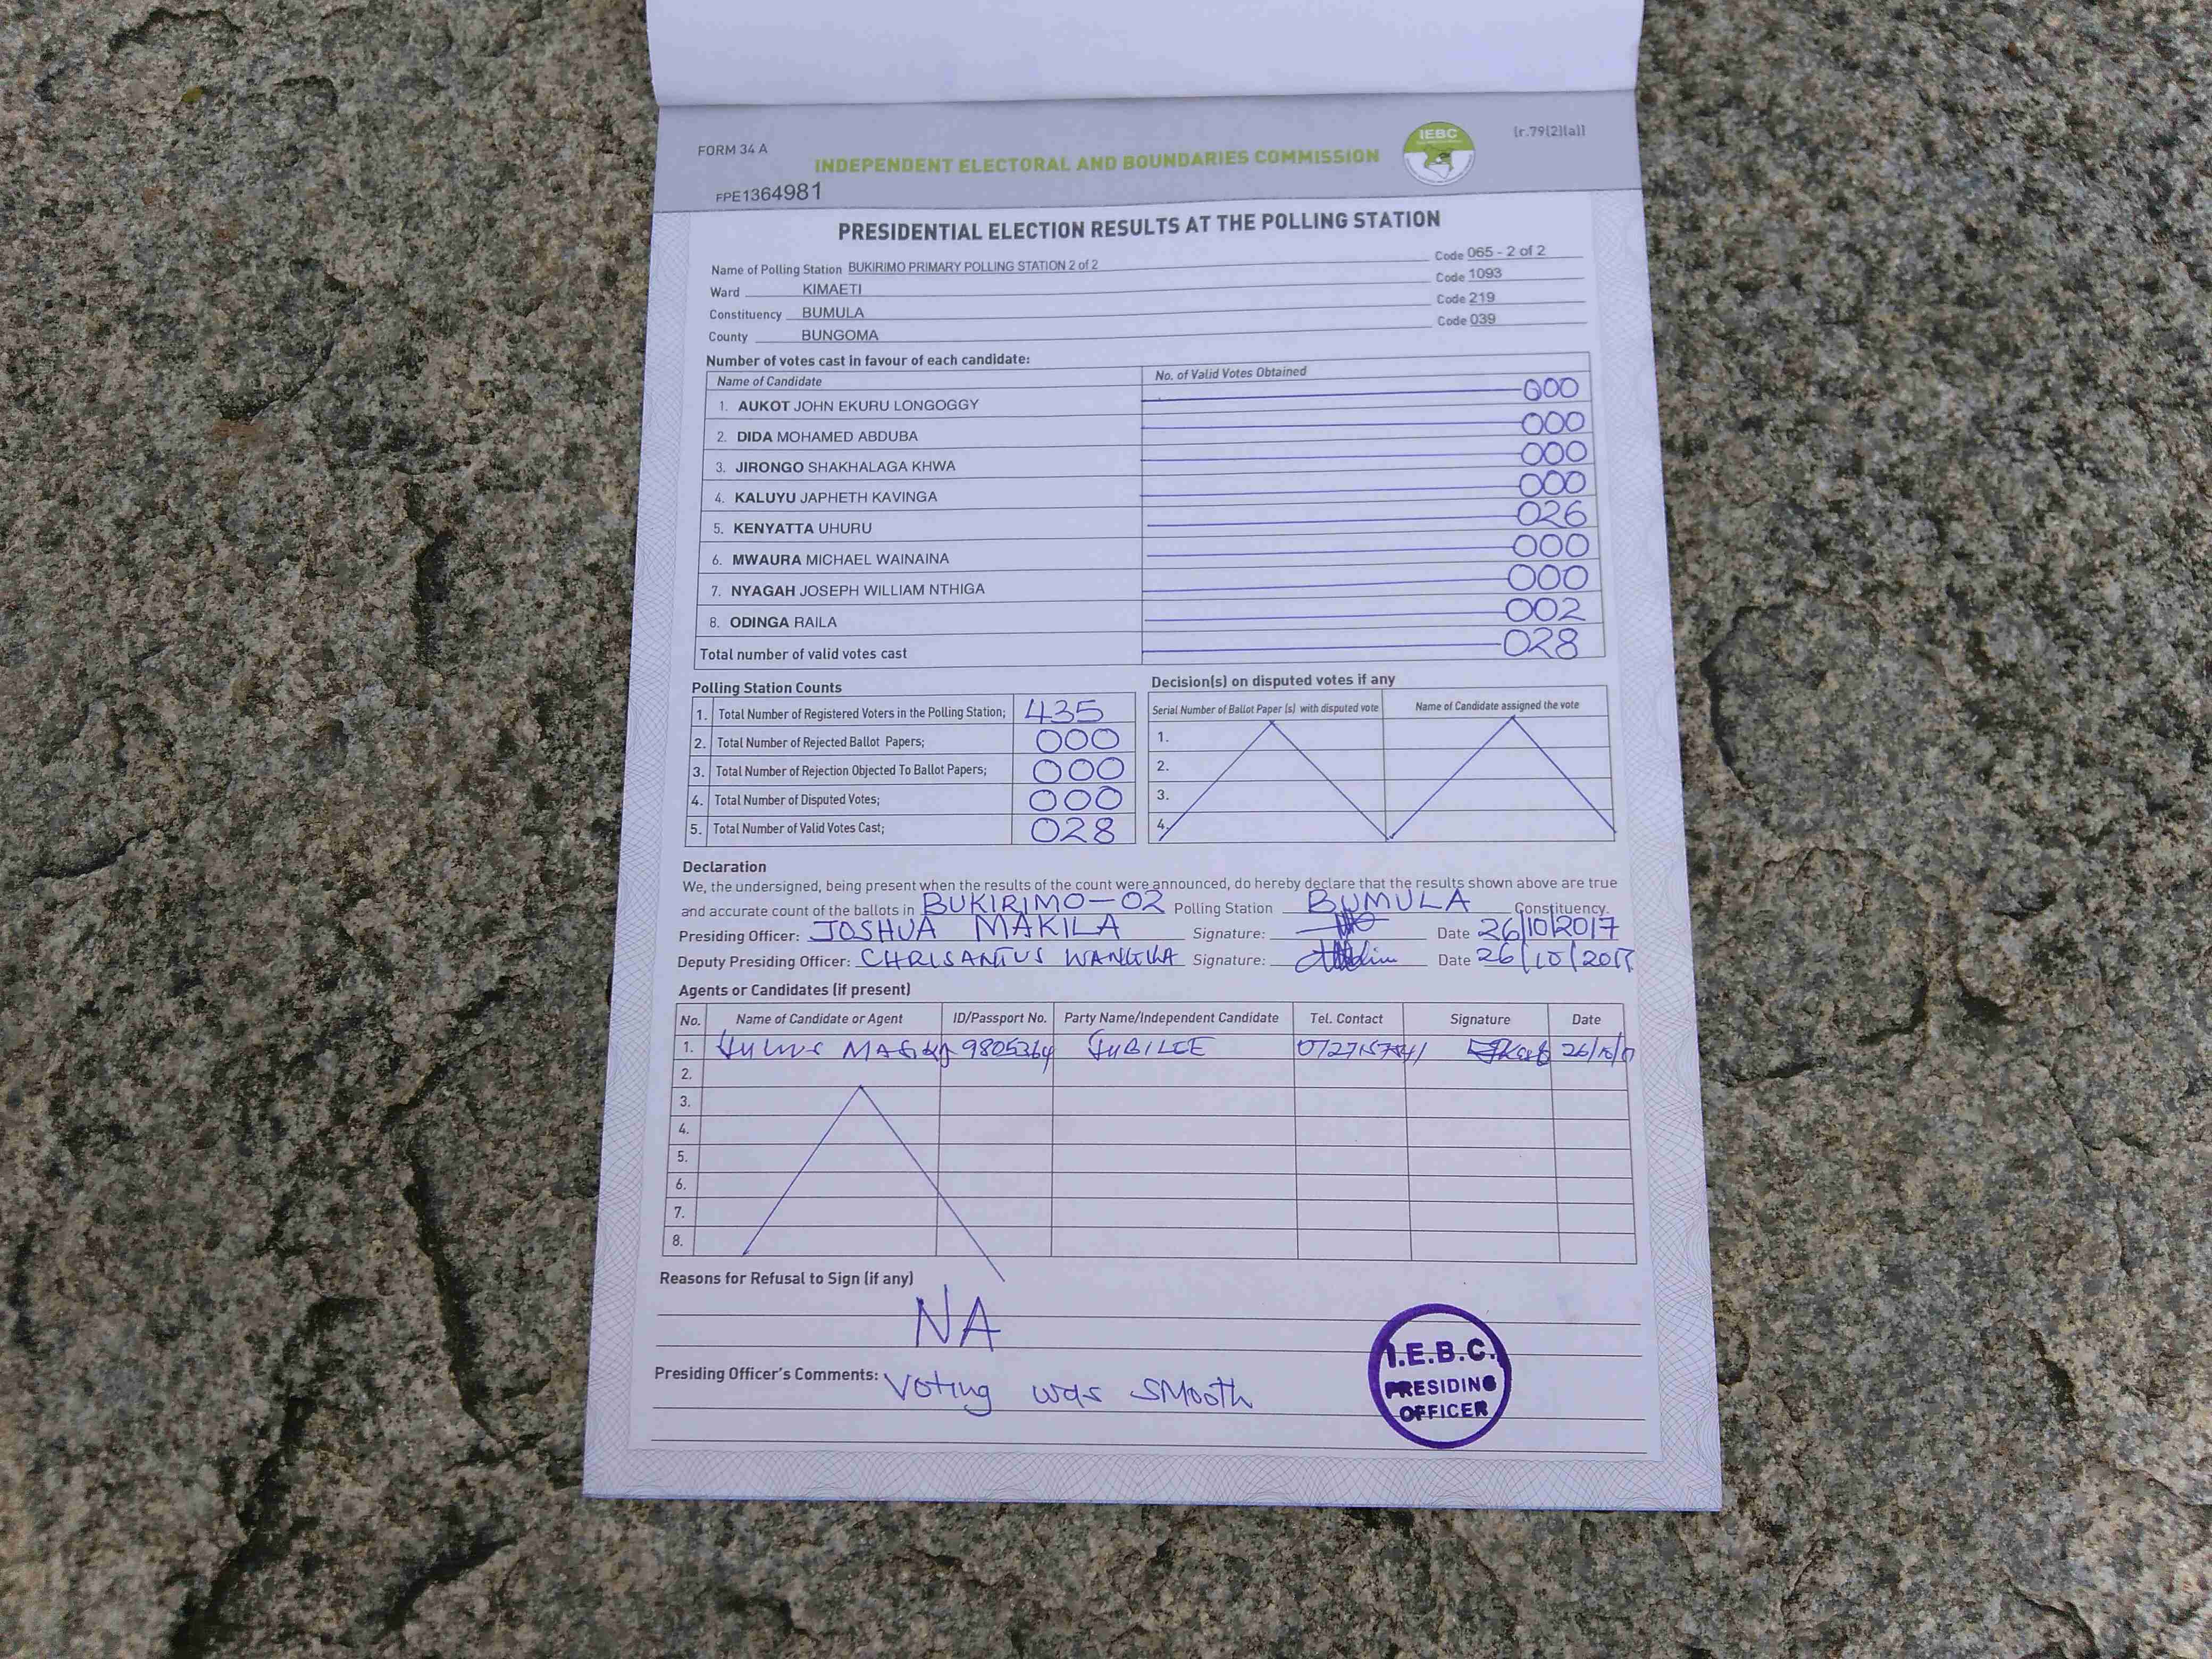 FORM 34 A
INDEPENDENT ELECTORAL AND BOUNDARIES COMMISSION
IEBC
[r.79(2)(a)]
FPE1364981
PRESIDENTIAL ELECTION RESULTS AT THE POLLING STATION
Name of Polling Station BUKIRIMO PRIMARY POLLING STATION 2 of 2 Code 065 - 2 of 2
Ward KIMAETI Code 1093
Constituency BUMULA Code 219
County BUNGOMA Code 039
Number of votes cast in favour of each candidate:
Name of Candidate No. of Valid Votes Obtained
1. AUKOT JOHN EKURU LONGOGGY 000
2. DIDA MOHAMED ABDUBA 000
3. JIRONGO SHAKHALAGA KHWA 000
4. KALUYU JAPHETH KAVINGA 000
5. KENYATTA UHURU 026
6. MWAURA MICHAEL WAINAINA 000
7. NYAGAH JOSEPH WILLIAM NTHIGA 000
8. ODINGA RAILA 002
Total number of valid votes cast 028
Polling Station Counts
1. Total Number of Registered Voters in the Polling Station; 435
2. Total Number of Rejected Ballot Papers; 000
3. Total Number of Rejection Objected To Ballot Papers; 000
4. Total Number of Disputed Votes; 000
5. Total Number of Valid Votes Cast; 028
Decision(s) on disputed votes if any
Serial Number of Ballot Paper (s) with disputed vote Name of Candidate assigned the vote
1.
2.
3.
4.
Declaration
We, the undersigned, being present when the results of the count were announced, do hereby declare that the results shown above are true
and accurate count of the ballots in BUKIRIMO-02 Polling Station BUMULA Constituency.
Presiding Officer: JOSHUA MAKILA Signature: Date 26/10/2017
Deputy Presiding Officer: CHRISANTUS WANGILA Signature: Date 26/10/2017
Agents or Candidates (if present)
No. Name of Candidate or Agent ID/Passport No. Party Name/Independent Candidate Tel. Contact Signature Date
1. JUBILEE 26/10/17
2.
3.
4.
5.
6.
7.
8.
Reasons for Refusal to Sign (if any)
NA
Presiding Officer's Comments: Voting was smooth
I.E.B.C.
PRESIDING
OFFICER